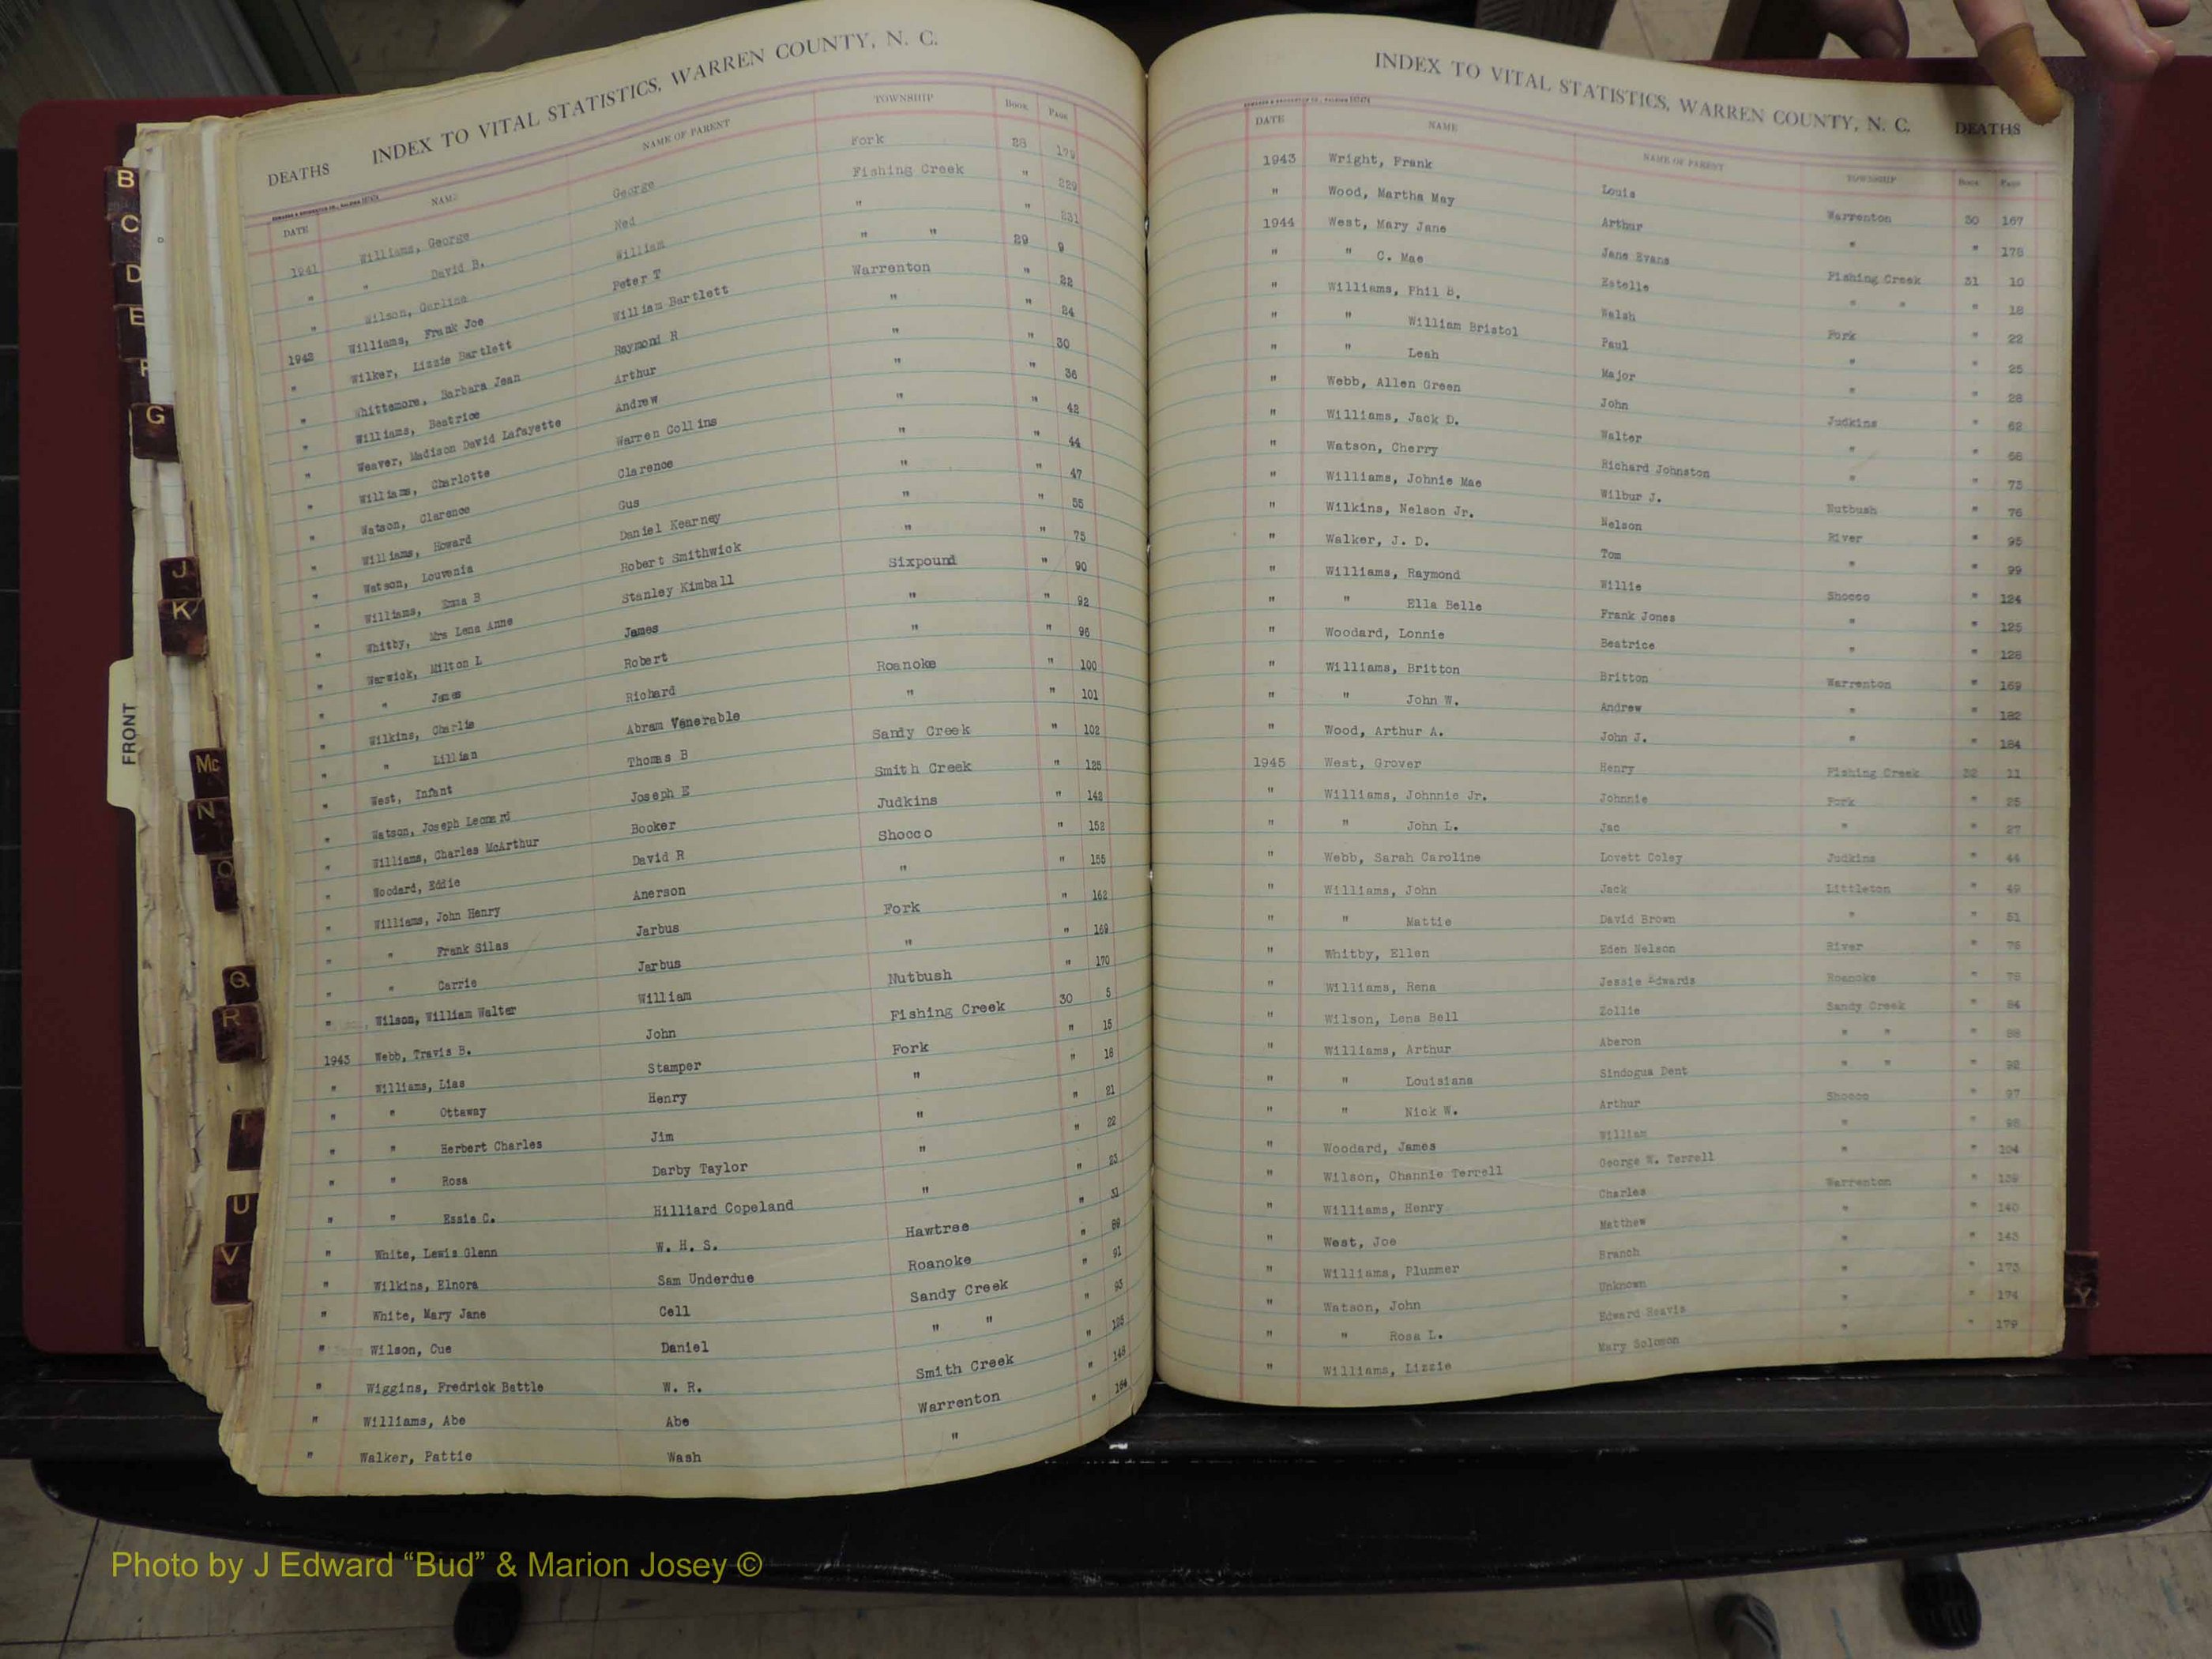 INDEX TO VITAL STATISTICS, WARREN COUNTY, N. C.
DEATHS
DATE NAME NAME OF PARENT TOWNSHIP Book Page
1941 Williams, George George Fork 28 179
" " David B. Ned Fishing Creek " 229
" Wilson, Carline William " " 231
1942 Williams, Frank Joe Peter T " " 29 9
" Wilker, Lizzie Bartlett William Bartlett Warrenton " 22
" Whittemore, Barbara Jean Raymond R " " 24
" Williams, Beatrice Arthur " " 30
" Weaver, Madison David Lafayette Andrew " " 36
" Williams, Charlotte Warren Collins " " 42
" Watson, Clarence Clarence " " 44
" Williams, Howard Gus " " 47
" Watson, Louvenia Daniel Kearney " " 55
" Williams, Emma B Robert Smithwick " " 75
" Whitby, Mrs Lena Anne Stanley Kimball Sixpound " 90
" Warwick, Milton L James " " 92
" " James Robert " " 96
" Wilkins, Charlie Richard Roanoke " 100
" " Lillian Abram Venerable " " 101
" West, Infant Thomas B Sandy Creek " 102
" Watson, Joseph Leonard Joseph E Smith Creek " 125
" Williams, Charles McArthur Booker Judkins " 142
" Woodard, Eddie David R Shocco " 152
" Williams, John Henry Anerson " " 155
" " Frank Silas Jarbus Fork " 162
" " Carrie Jarbus " " 169
" Wilson, William Walter William Nutbush " 170
1943 Webb, Travis B. John Fishing Creek 30 5
" Williams, Lias Stamper Fork " 15
" " Ottaway Henry " " 18
" " Herbert Charles Jim " " 21
" " Rosa Darby Taylor " " 22
" " Essie C. Hilliard Copeland " " 23
" White, Lewis Glenn W. H. S. Hawtree " 31
" Wilkins, Elnora Sam Underdue Roanoke " 89
" White, Mary Jane Cell Sandy Creek " 91
" Wilson, Cue Daniel " " " 95
" Wiggins, Fredrick Battle W. R. Smith Creek " 125
" Williams, Abe Abe Warrenton " 148
" Walker, Pattie Wash " " 164
INDEX TO VITAL STATISTICS, WARREN COUNTY, N. C. DEATHS
DATE NAME NAME OF PARENT TOWNSHIP Book Page
1943 Wright, Frank Louis Warrenton 30 167
" Wood, Martha May Arthur " " 178
1944 West, Mary Jane Jane Evans Fishing Creek 31 10
" " C. Mae Estelle " " " 18
" Williams, Phil B. Welsh Fork " 22
" " William Bristol Paul " " 25
" " Leah Major " " 28
" Webb, Allen Green John Judkins " 62
" Williams, Jack D. Walter " " 68
" Watson, Cherry Richard Johnston " " 73
" Williams, Johnie Mae Wilbur J. Nutbush " 76
" Wilkins, Nelson Jr. Nelson River " 95
" Walker, J. D. Tom " " 99
" Williams, Raymond Willie Shocco " 124
" " Ella Belle Frank Jones " " 125
" Woodard, Lonnie Beatrice " " 128
" Williams, Britton Britton Warrenton " 169
" " John W. Andrew " " 182
" Wood, Arthur A. John J. " " 184
1945 West, Grover Henry Fishing Creek 32 11
" Williams, Johnnie Jr. Johnnie Fork " 25
" " John L. Jac " " 27
" Webb, Sarah Caroline Lovett Coley Judkins " 44
" Williams, John Jack Littleton " 49
" " Mattie David Brown " " 51
" Whitby, Ellen Eden Nelson River " 76
" Williams, Rena Jessie Edwards Roanoke " 78
" Wilson, Lena Bell Zollie Sandy Creek " 84
" Williams, Arthur Aberon " " " 88
" " Louisiana Sindogus Dent " " " 92
" " Nick W. Arthur Shocco " 97
" Woodard, James William " " 98
" Wilson, Channie Terrell George W. Terrell " " 104
" Williams, Henry Charles Warrenton " 139
" West, Joe Matthew " " 140
" Williams, Plummer Branch " " 143
" Watson, John Unknown " " 173
" " Rosa L. Edward " " 174
" Williams, Lizzie Mary Solomon " " 179
B
C
D
E
F
G
J
K
Mc
N
O
Q
R
T
U
V
Y
FRONT
Photo by J Edward “Bud” & Marion Josey ©